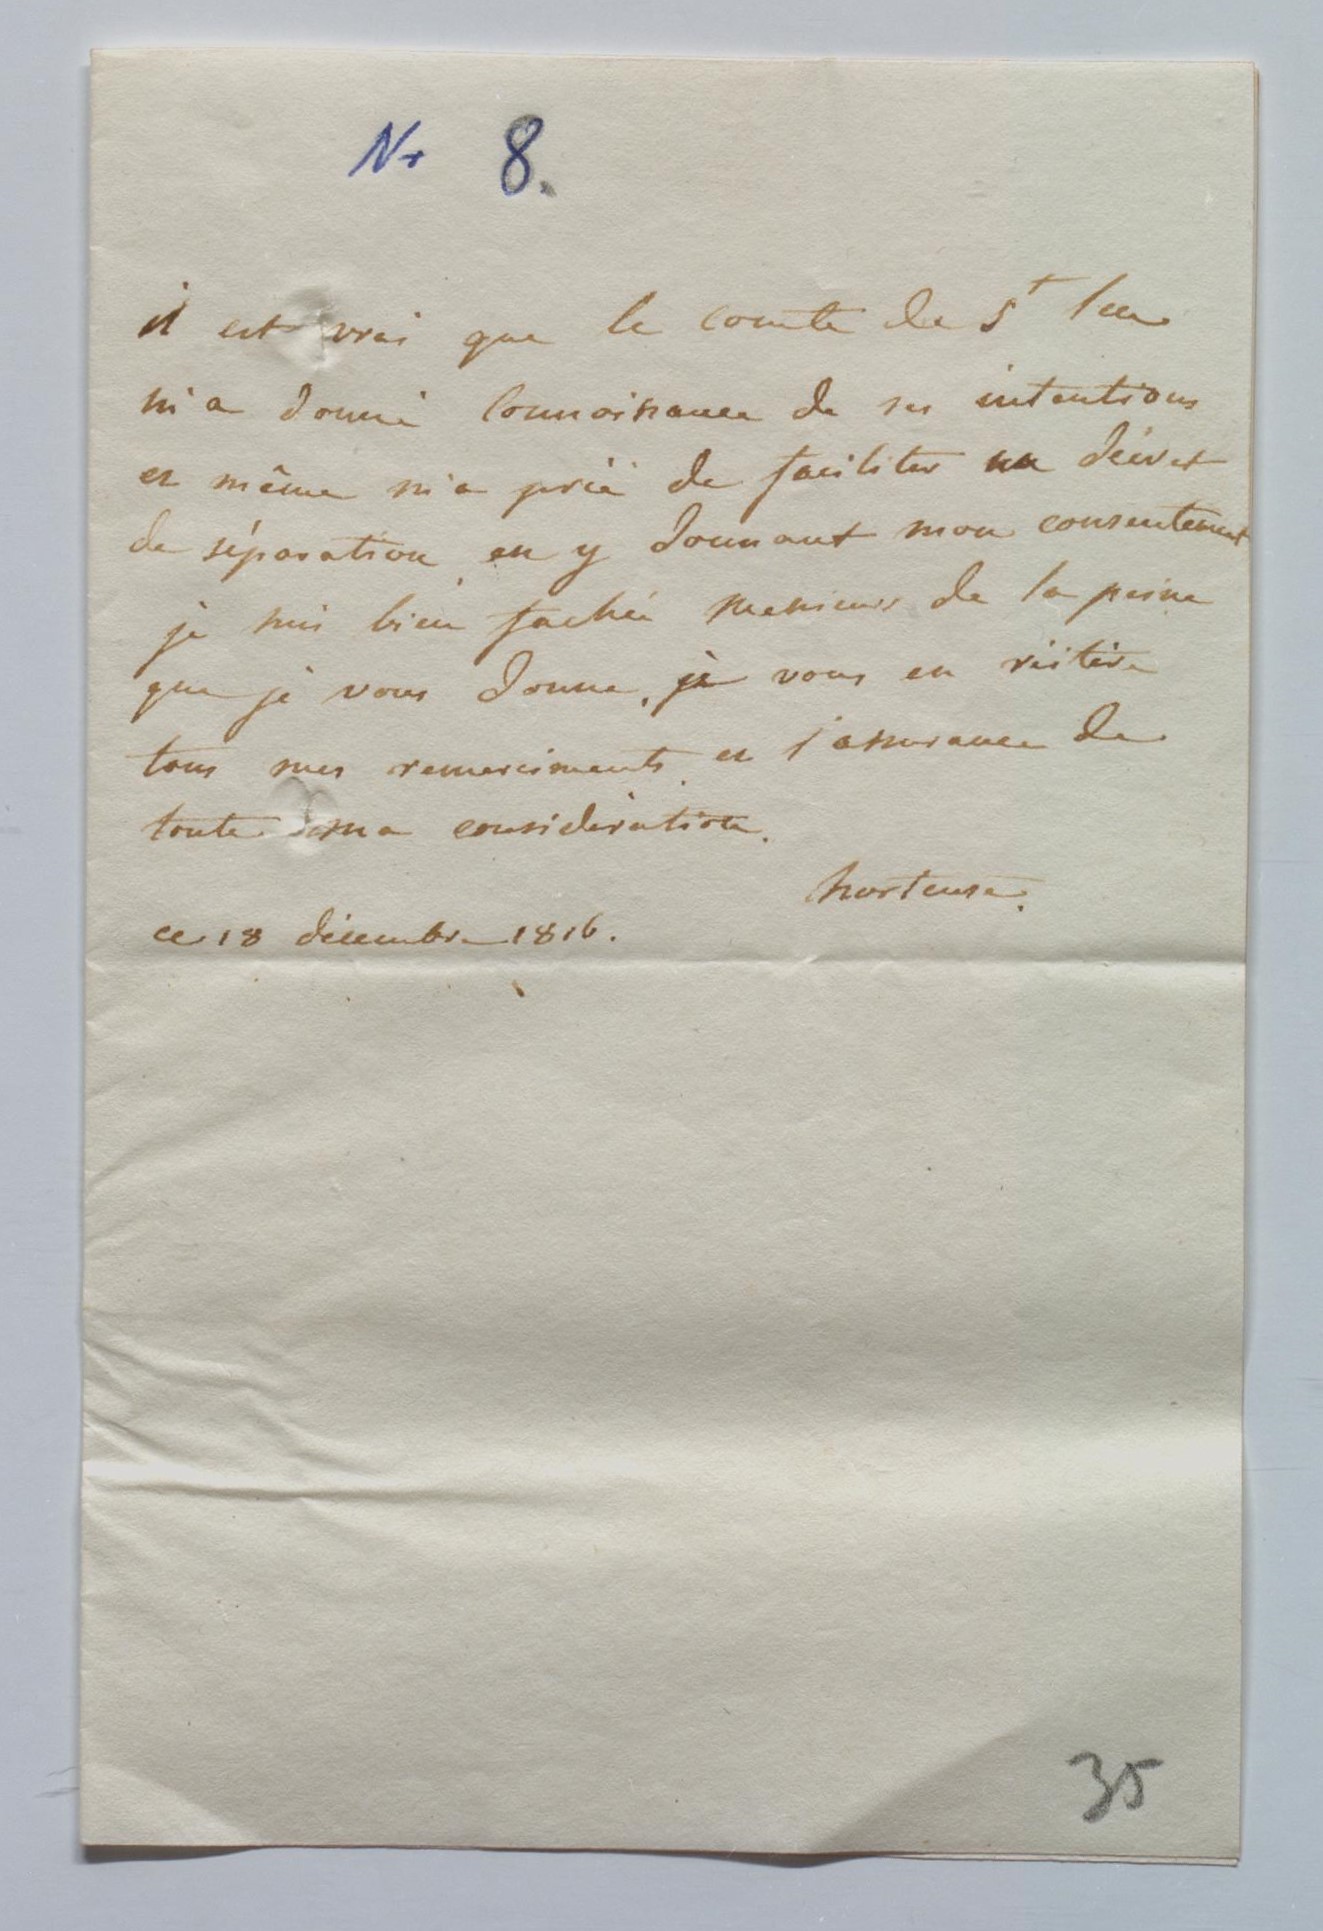 Nr 8.
il est vrai que le comte de St leu
m'a donné connoissance de ses intentions
et même m'a prié de faciliter un décret
de séparation en y donnant mon consentement
je suis bien fachée messieurs de la peine
que je vous donne. je vous en réitère
tous mes remerciments et l'assurance de
toute ma considération.
hortense.
ce 18 décembre 1816.
35